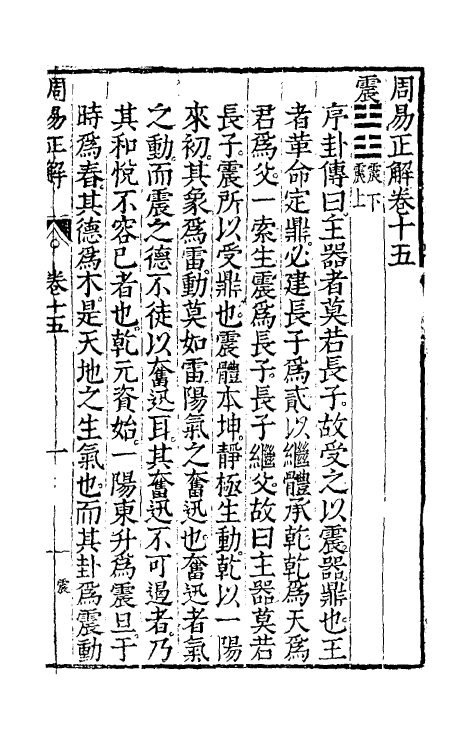 周易正解卷十五
震䷲震下震上
序卦傳曰主器者莫若長子故受之以震器鼎也王
者革命定鼎必建長子爲貳以繼體承乾乾爲天爲
君爲父一索生震爲長子長子繼父故曰主器莫若
長子震所以受鼎也震體本坤靜極生動乾以一陽
來初其象爲雷動莫如雷陽氣之奮迅也奮迅者氣
之動而震之德不徒以奮迅耳其奮迅不可遏者乃
其和悅不容已者也乾元資始一陽東升爲震旦于
時爲春其德爲木是天地之生氣也而其卦爲震動
周易正解 卷十五 一 震